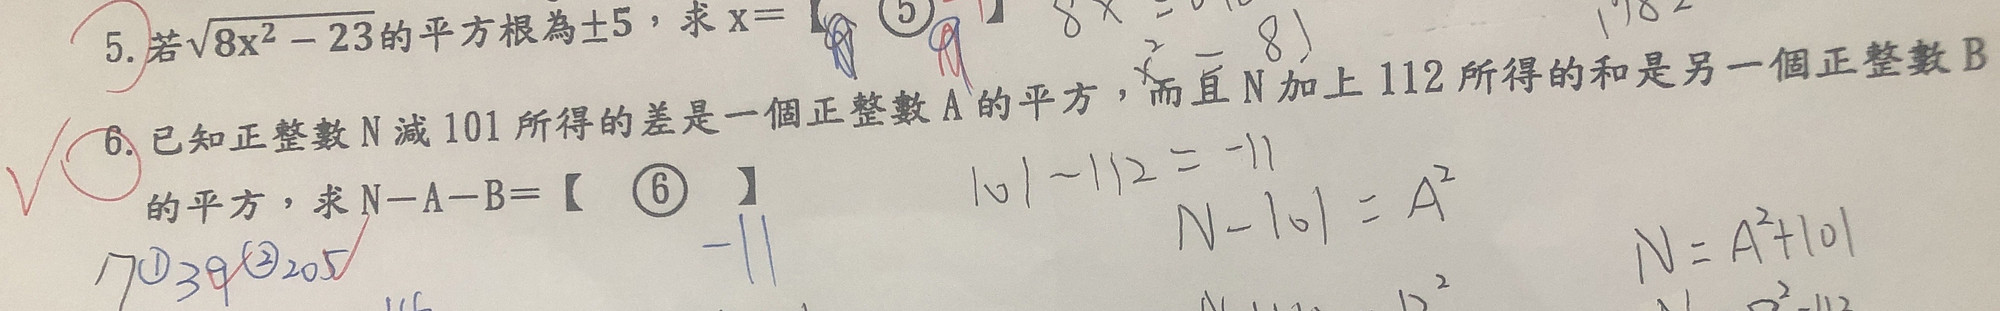 5. 若√8x² − 23的平方根為±5，求 x=【 ⑤ 】
8x
x² = 81
6. 已知正整數 N 減 101 所得的差是一個正整數 A 的平方，而且 N 加上 112 所得的和是另一個正整數 B
的平方，求 N－A－B=【 ⑥ 】
101 - 112 = -11
N - 101 = A²
N = A² + 101
-11
7 ① 39 ② 205